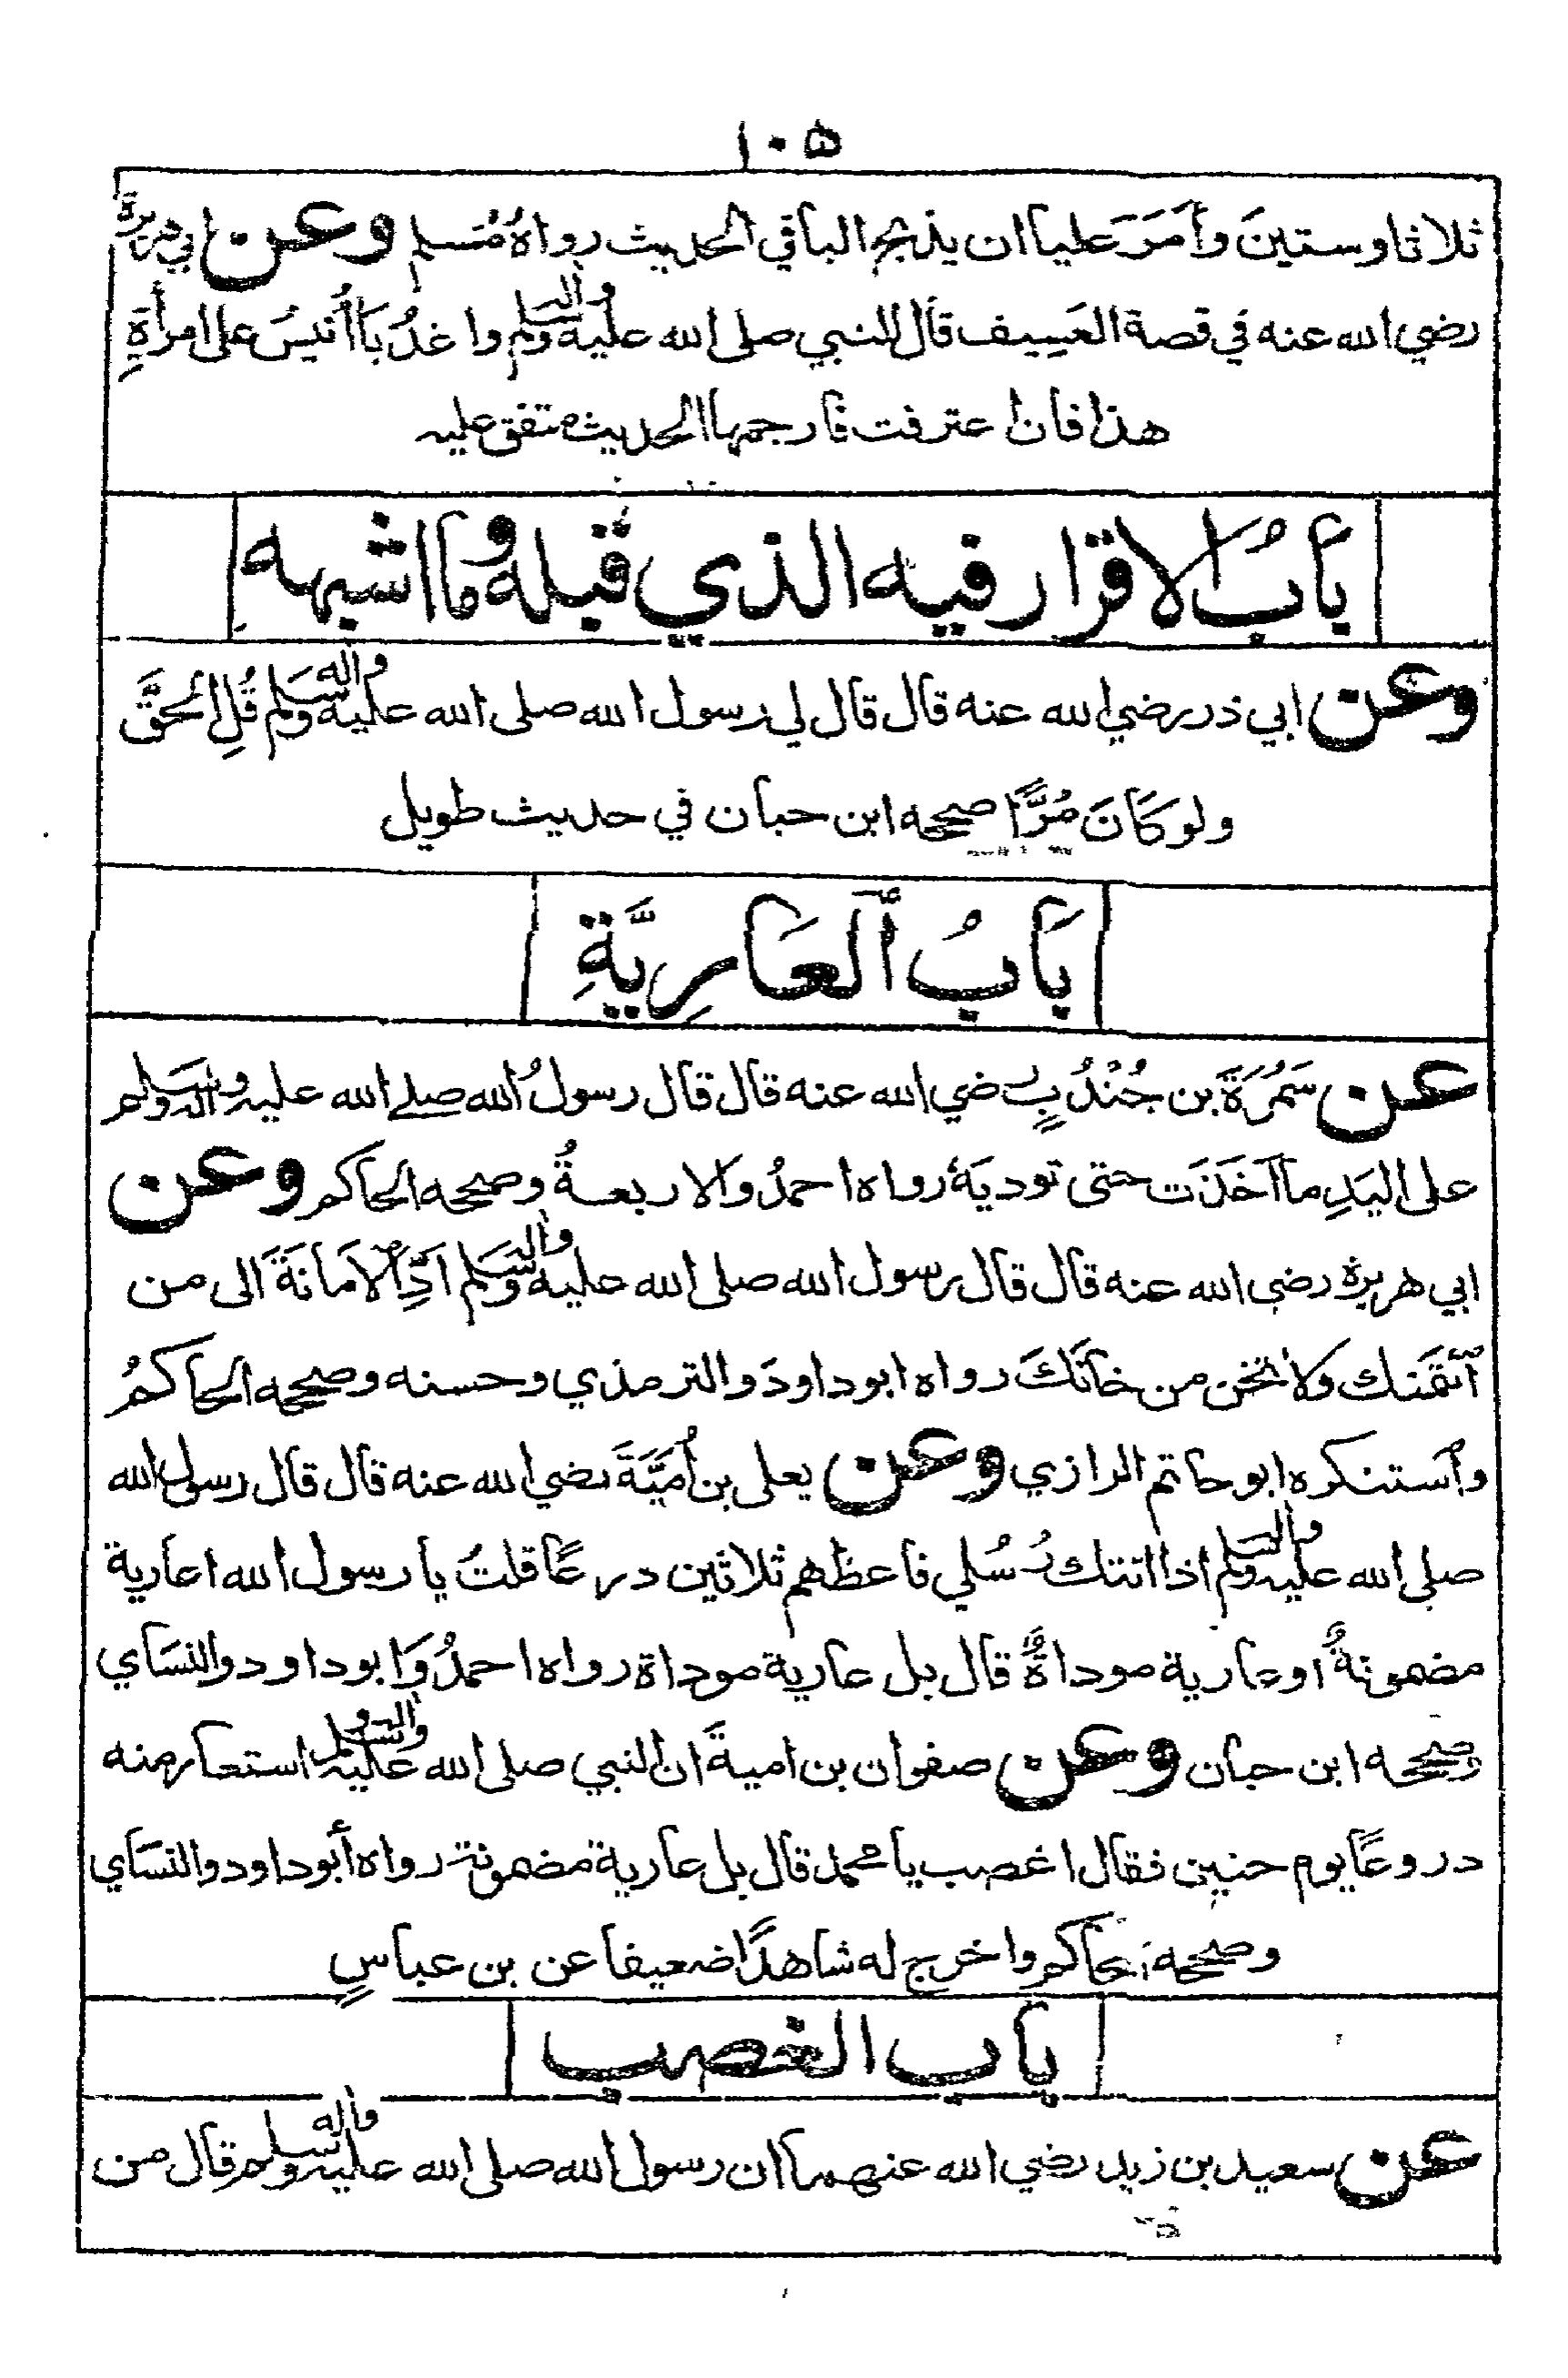 ١٠٥
ثلاثا وستينَ وأَمَرَ عليا ان يذبح الباقي الحديث رواهُ مُسلم وعن ابي هريرة
رضي الله عنه في قصة العَسِيف قال النبي صلى الله عليه وآله وسلم واغدُ يَا أُنَيسُ على امرأةِ
هذا فان اعترفت فارجمها الحديث متفق عليه
بابُ الاقرار فيه الذي قبله وما اشبهه
وعن ابي ذر رضي الله عنه قال قال لي رسول الله صلى الله عليه وآله وسلم قُلِ الحَقَّ
ولو كَانَ مُرًّا صححه ابن حبان في حديث طويل
بَابُ ٱلعَارِيَّةِ
عن سَمُرَةَ بن جُنْدُبٍ رضي الله عنه قال قال رسولُ الله صلى الله عليه وآله وسلم
على اليَدِ ما أَخَذَت حتى توديَهُ رواه احمدُ والاربعةُ وصححه الحاكم وعن
ابي هريرة رضي الله عنه قال قال رسول الله صلى الله عليه وآله وسلم اَدِّ الاَمَانَةَ الى من
ٱئتمَنَك ولا تخن من خَانَكَ رواه ابو داودَ والترمذي وحسنه وصححه الحاكمُ
وٱستنكره ابو حاتم الرازي وعن يعلى بن أُمَيَّةَ رضي الله عنه قال قال رسول الله
صلى الله عليه وآله وسلم اذا اتتك رُسُلي فاعظهم ثلاثين درعًا قلتُ يا رسول الله اعارية
مضمونةٌ او عارية موداةٌ قال بل عارية موداة رواه احمدُ وَابو داود والنسَاي
وصححه ابن حبان وعن صفوان بن اميةَ ان النبي صلى الله عليه وآله وسلم استعار منه
دروعًا يوم حنين فقال اغصب يا محمد قال بل عارية مضمونة رواه أبو داود والنسَاي
وصححه الحاكم واخرج له شاهدًا ضعيفا عن بن عباسٍ
باب الغصب
عن سعيد بن زيد رضي الله عنهما ان رسول الله صلى الله عليه وآله وسلم قال من